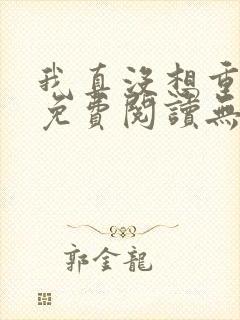 我真沒想重
免費閱讀無
郭金龍